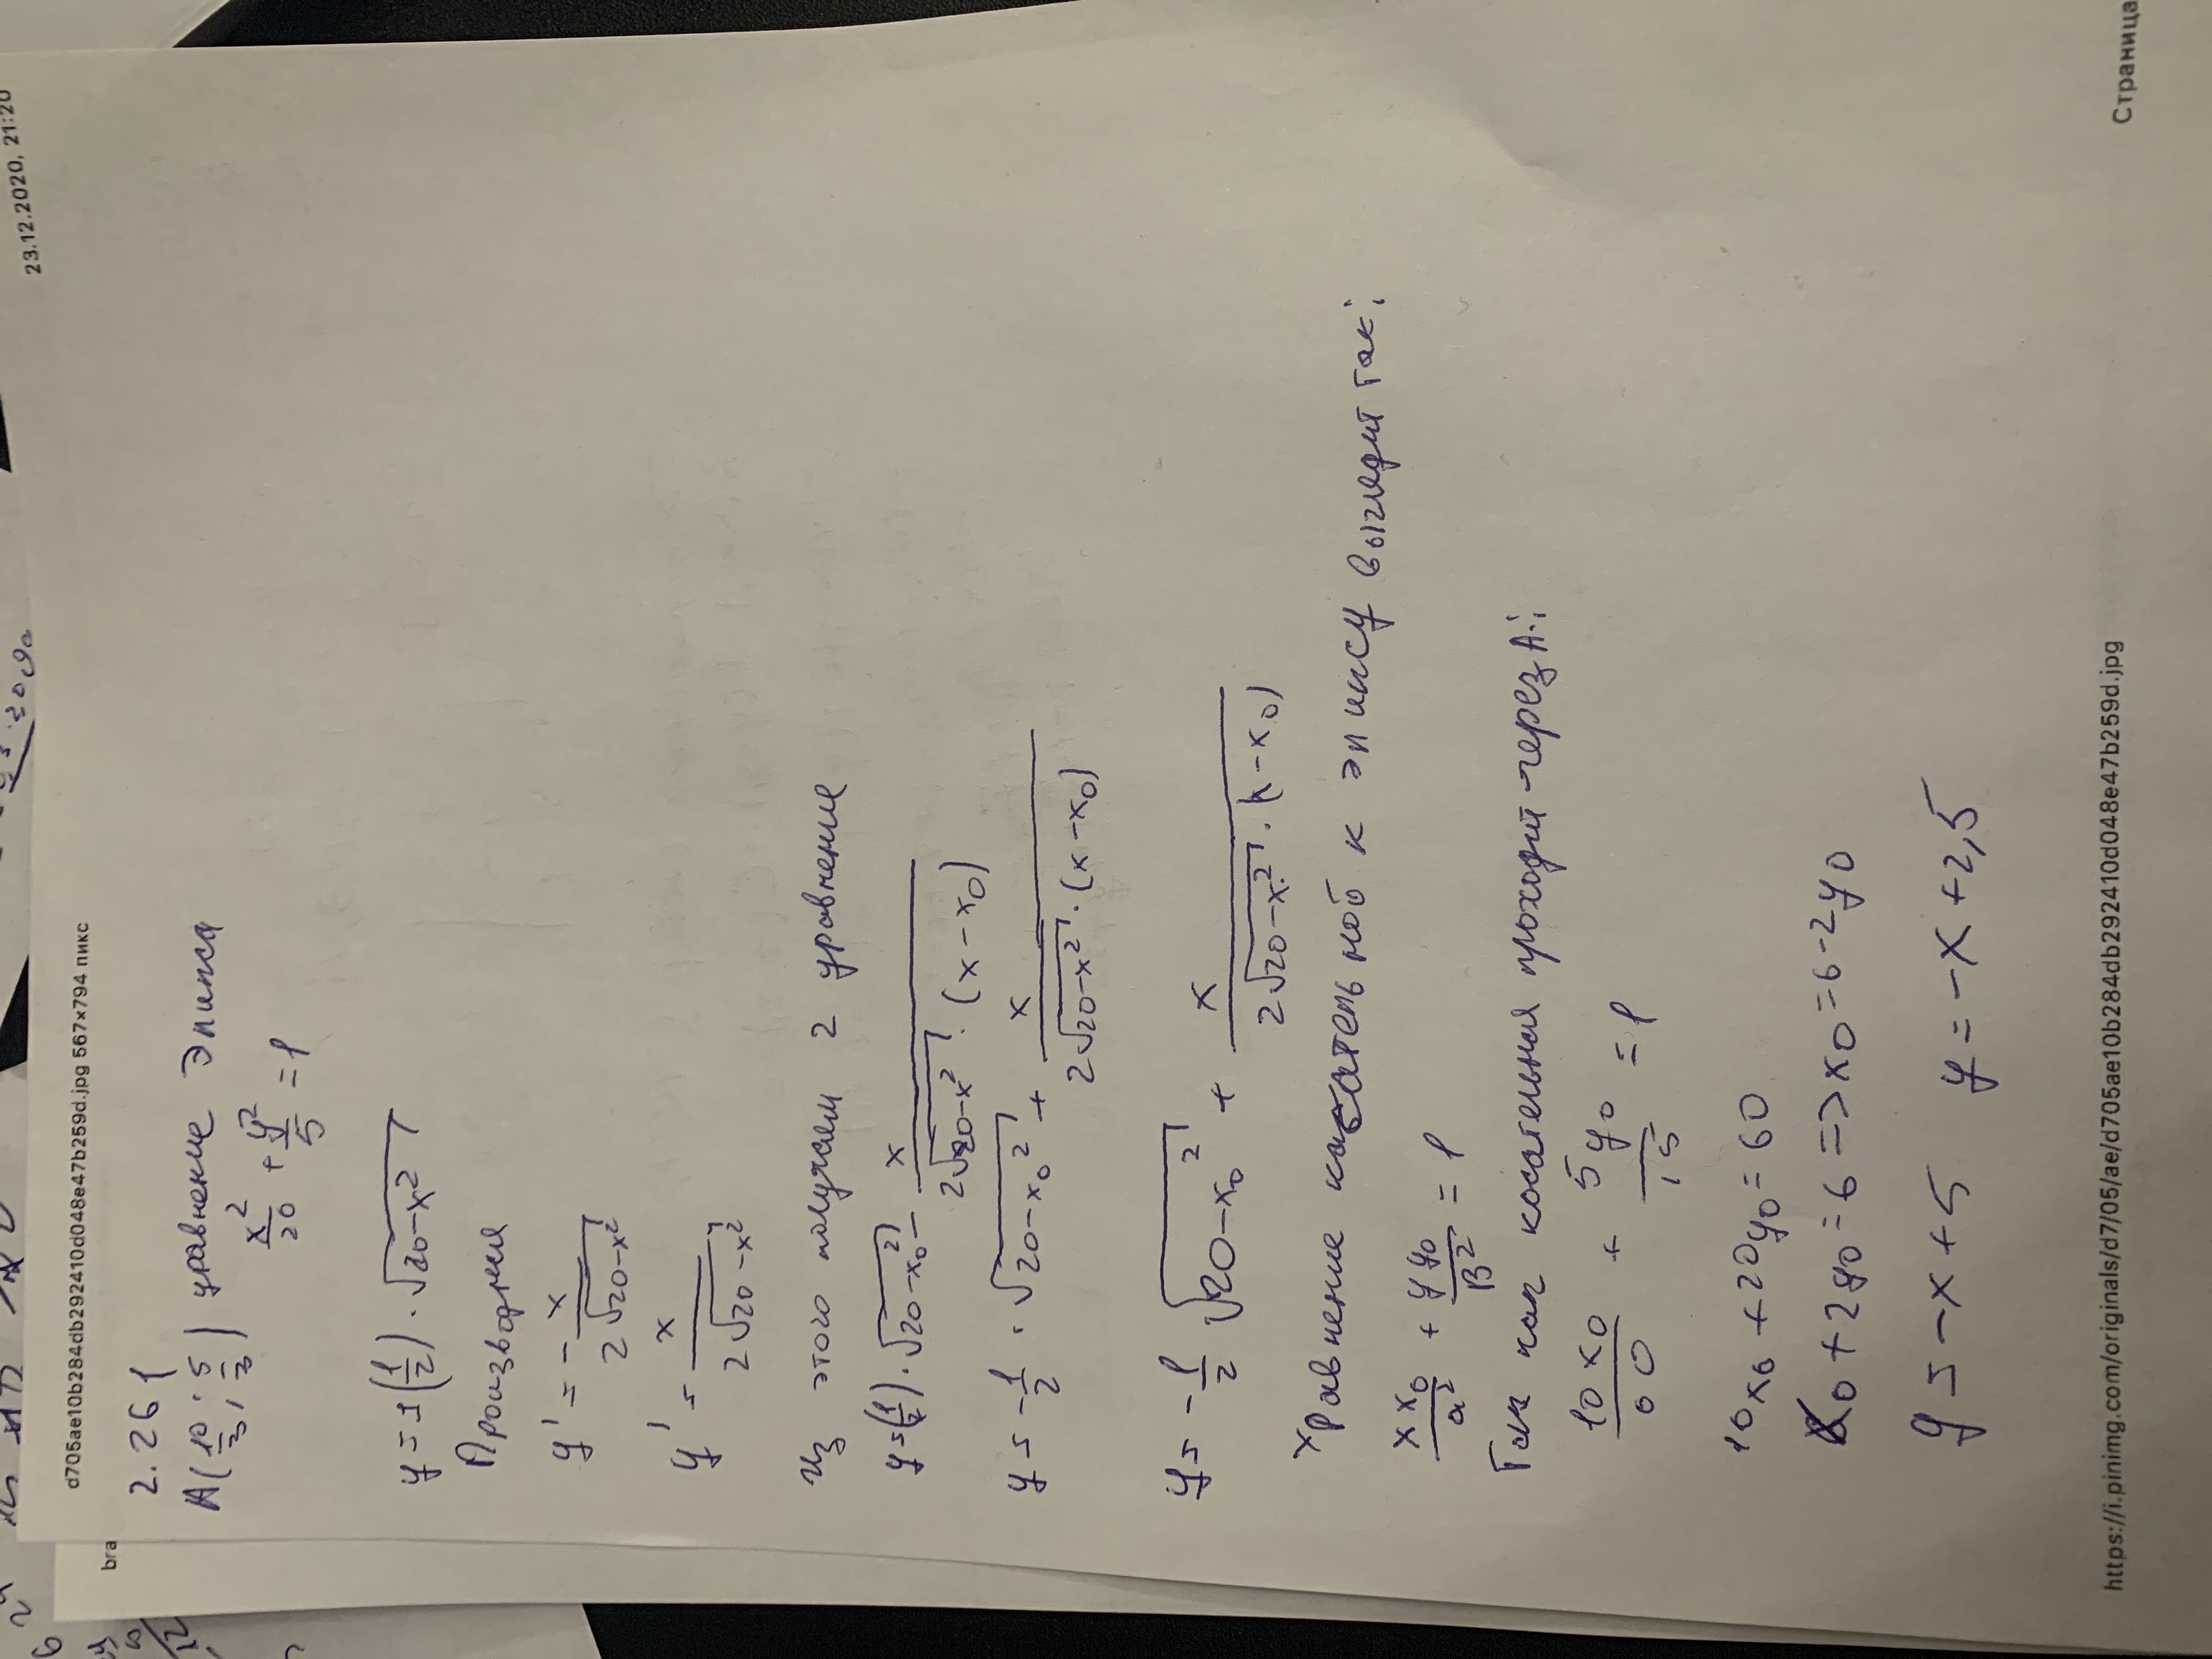 23.12.2020, 21:20
d705ae10b284db292410d048e47b259d.jpg 567×794 пикс
bra
2.261
A(10/3; 5/3) уравнение Элипса
x²/20 + y²/5 = 1
y = ±(1/2) · √(20-x²)
Производная
y' = - x/(2√(20-x²))
y' = x/(2√(20-x²))
Из этого получаем 2 уравнение
y = (1/2) · √(20-x₀²) - x/(2√(20-x²) · (x-x₀))
y = -1/2 · √(20-x₀²) + x/(2√(20-x²) · (x-x₀))
y = -1/2 √(20-x₀²) + x/(2√(20-x²) · (x-x₀))
Уравнение касательной к элипсу выглядит так:
x x₀/a² + y y₀/B² = 1
Так как касательная проходит через A:
10x₀/60 + 5y₀/15 = 1
10x₀ + 20y₀ = 60
x₀ + 2y₀ = 6 => x₀ = 6-2y₀
y = -x+5 y = -x+2,5
https://i.pinimg.com/originals/d7/05/ae/d705ae10b284db292410d048e47b259d.jpg
Страница